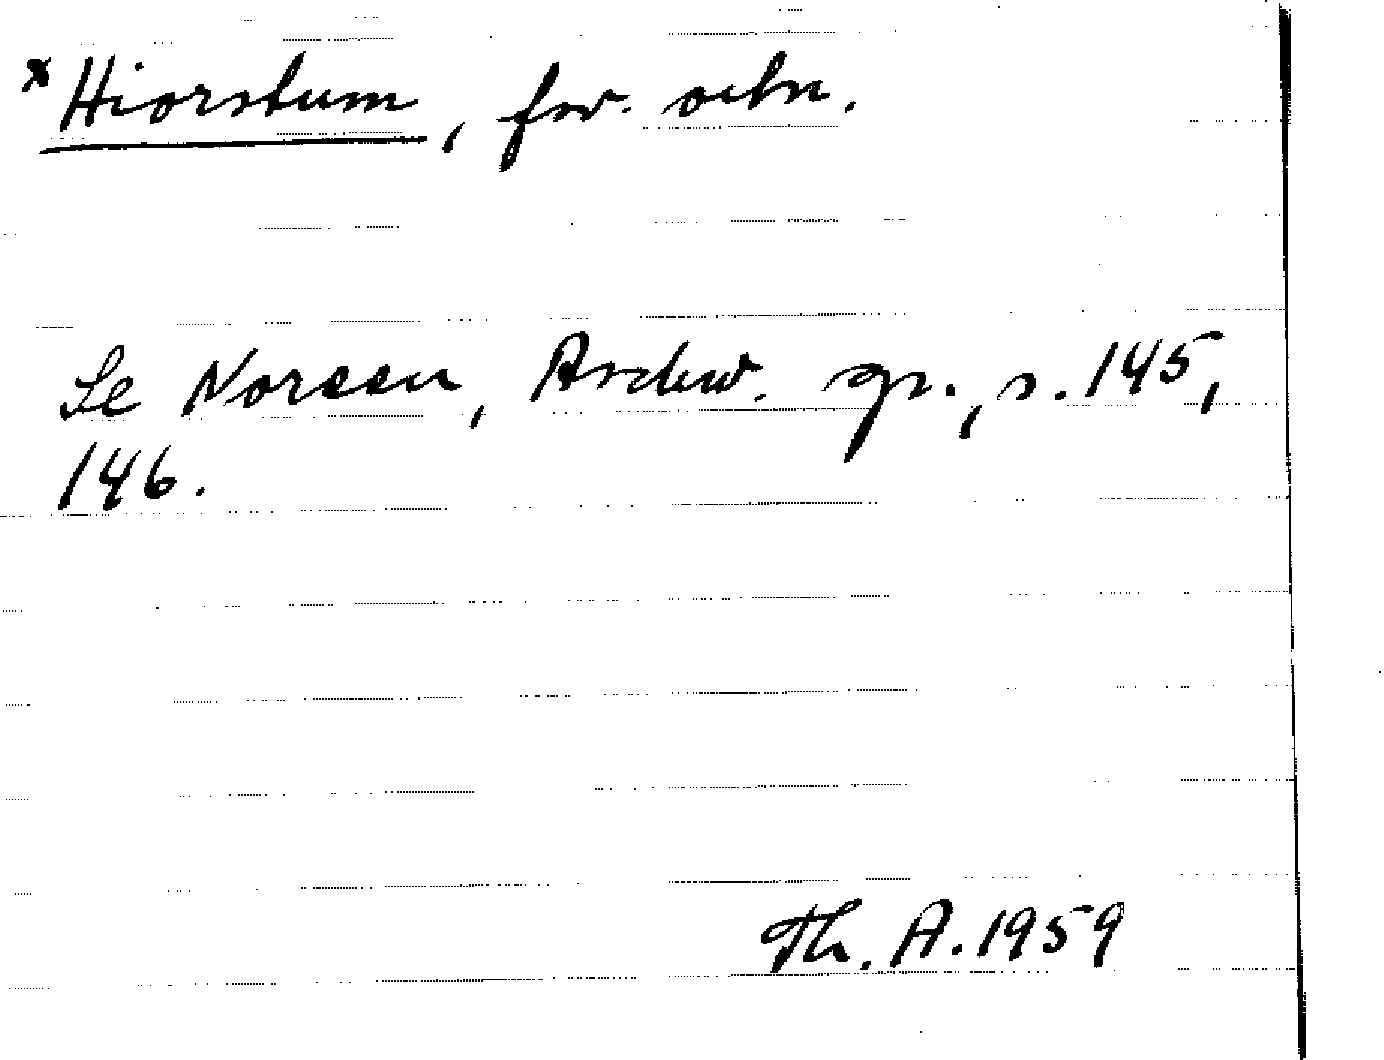 x Hiorstum, fsv. ortn.
Se Noreen, Ärtemarksm. gr., s. 145,
146.
Th. A. 1959